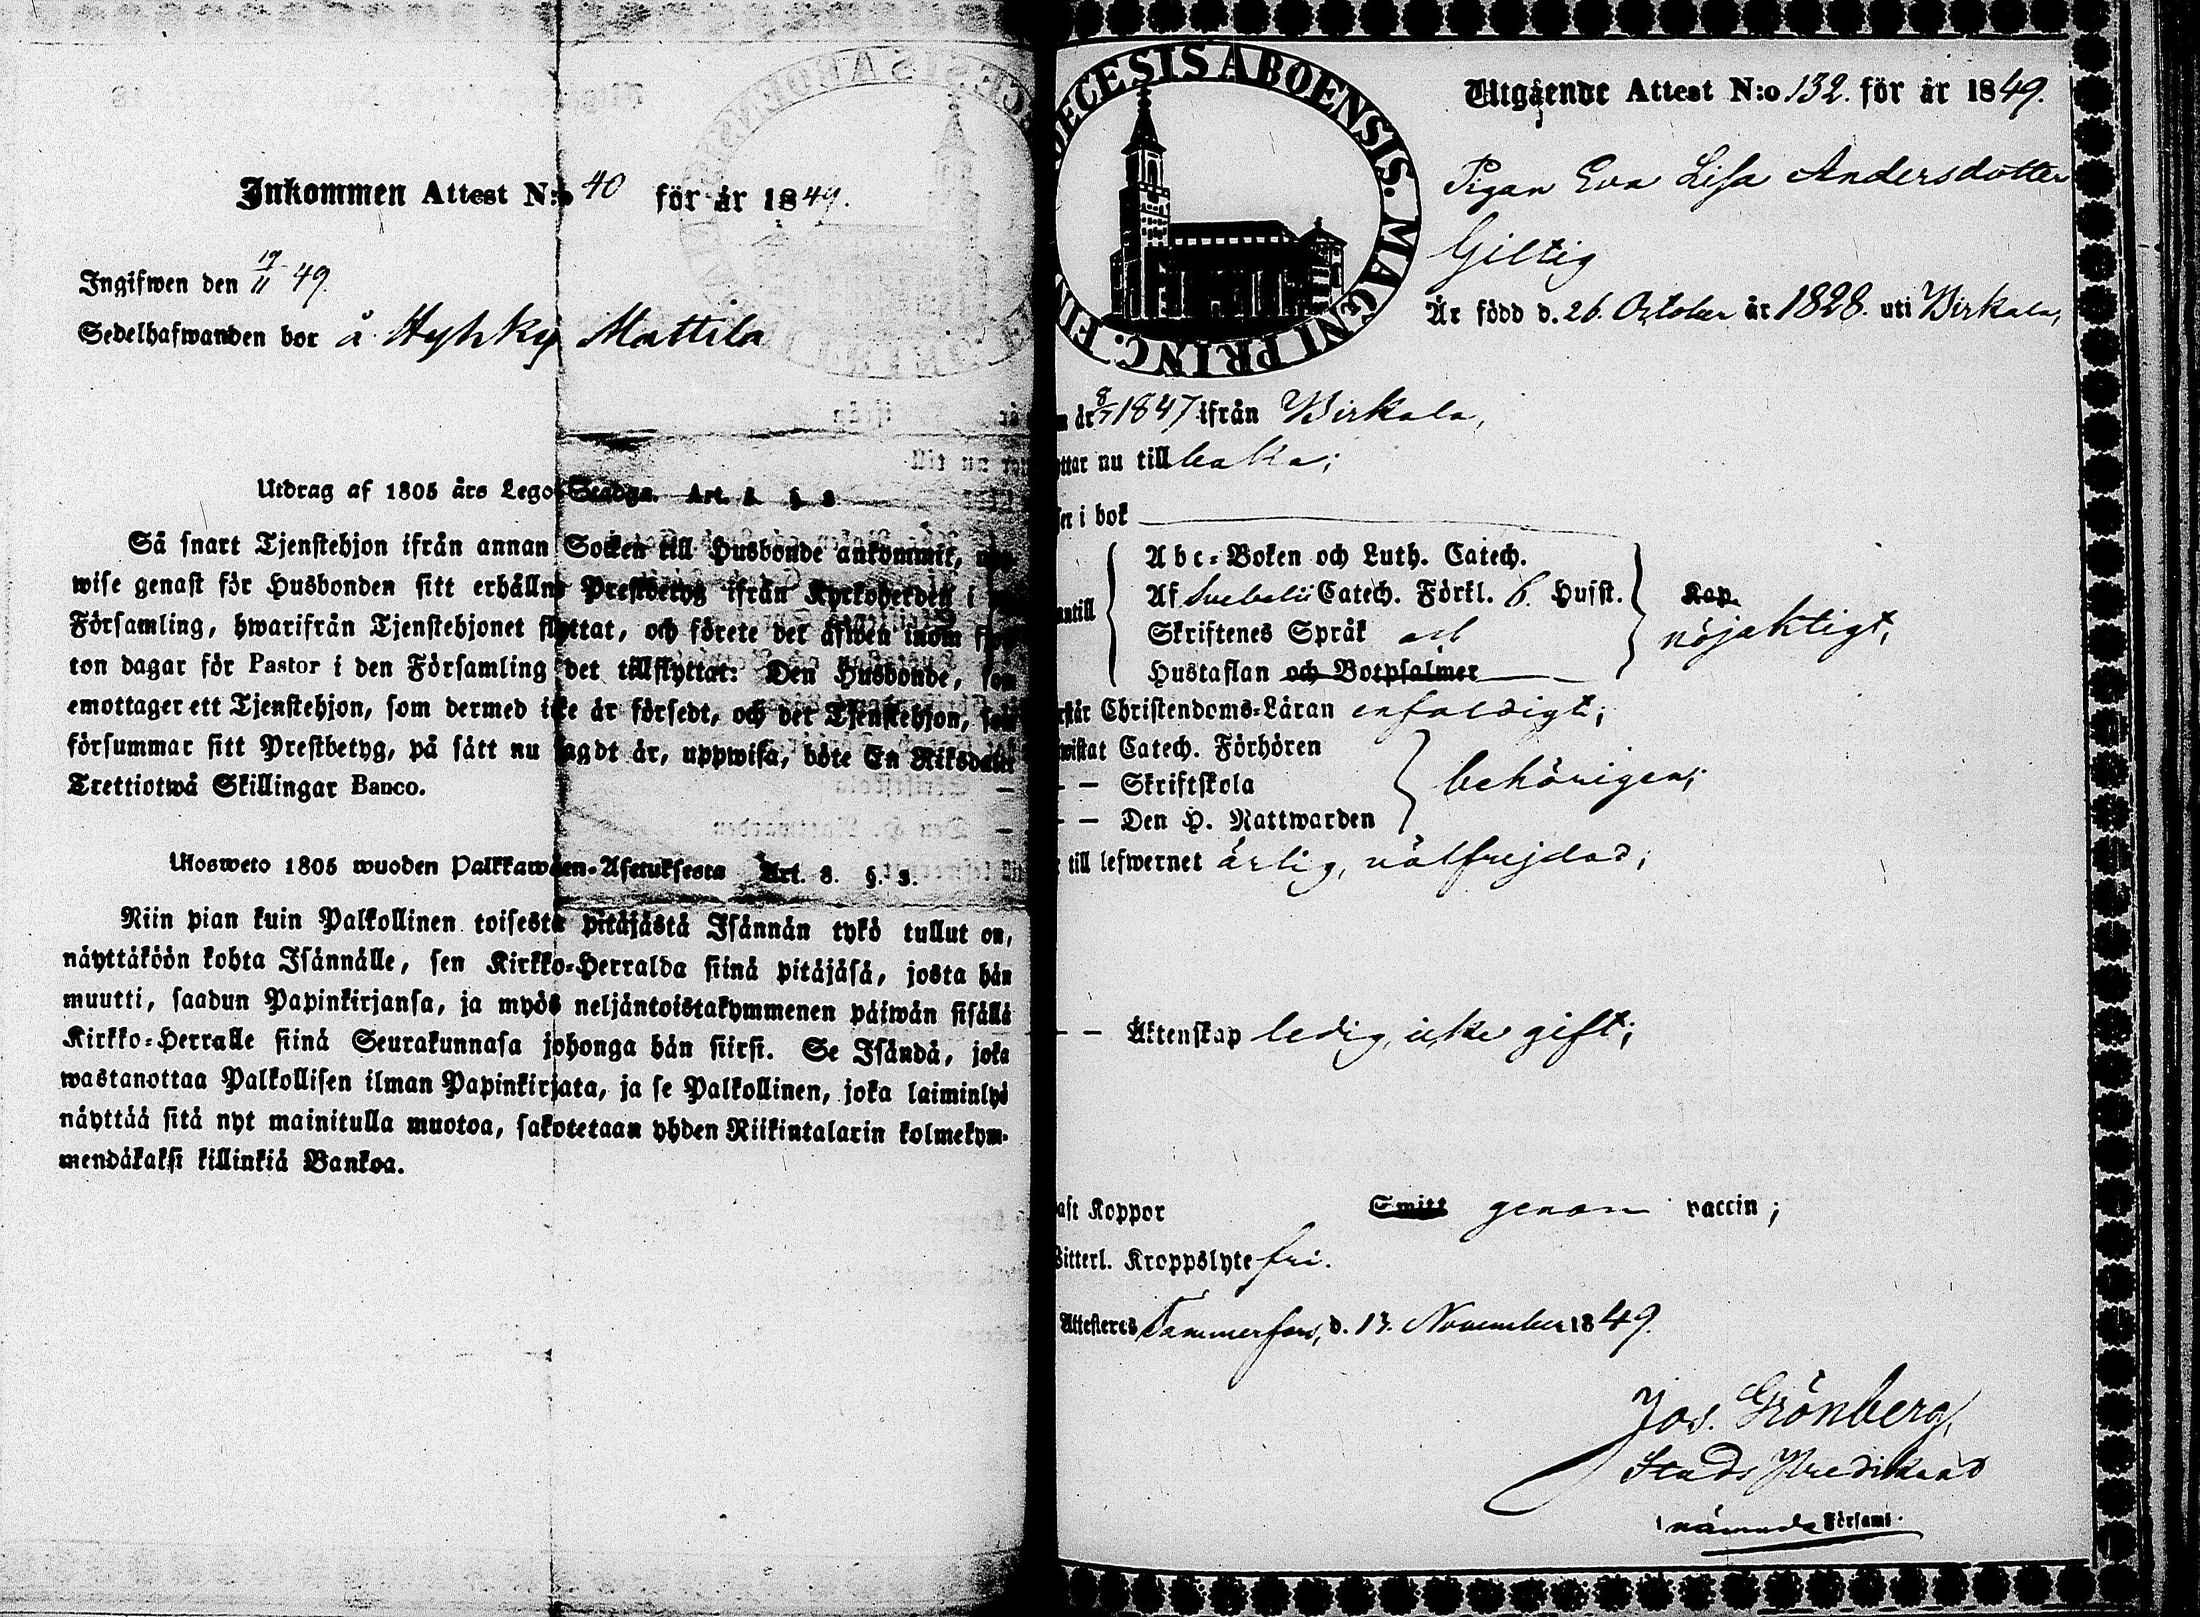 Inkommen Attest N:o 40 för år 1849.
Ingifwen den 19/11 49.
Sedelhafwanden bor å Hyhky Mattila
Utdrag af 1805 års Lego-Stadga. Art. 8. §. 8
Så snart Tjenstehjon ifrån annan Socken till Husbonde ankommit, upp-
wise genast för Husbonden sitt erhållne Prestbetyg ifrån Kyrkoherden i
Församling, hwarifrån Tjenstehjonet flyttat, och förete det äfwen inom fjor-
ton dagar för Pastor i den Församling det tillflyttat: Den Husbonde, som
emottager ett Tjenstehjon, som dermed icke är försedt, och det Tjenstehjon, som
försummar sitt Prestbetyg, på sätt nu sagdt är, uppwisa, böte En Riksdaler
Trettiotwå Skillingar Banco.
Ulosweto 1805 wuoden Palkkawäen-Asetuksesta Art. 8. §. 8.
Niin pian kuin Palkollinen toisesta pitäjästä Isännän tykö tullut on,
näyttäköön kohta Isännälle, sen Kirkko-Herralda siinä pitäjäsä, josta hän
muutti, saadun Papinkirjansa, ja myös neljäntoistakymmenen päiwän sisällä
Kirkko-Herralle siinä Seurakunnasa johonga hän siirsi. Se Isändä, joka
wastanottaa Palkollisen ilman Papinkirjata, ja se Palkollinen, joka laiminlyö
näyttää sitä nyt mainitulla muotoa, sakotetaan yhden Riikintalarin kolmekym-
mendäkaksi killinkiä Bankoa.
DIOECESIS ABOENSIS. MAGNI PRINC. FIN
Utgående Attest N:o 132. för år 1849.
Pigan Eva Lisa Andersdotter
Giltig
Är född d. 26. October år 1828. uti Birkala,
m år 8/7 1847 ifrån Birkala,
yttar nu till baka;
ser i bok
Abc-Boken och Luth. Catech.
antill Af Svebelii Catech. Förkl. 6. Husst. Kap.
Skriftenes Språk och nöjaktigt,
Hustaflan och Botpsalmer
rstår Christendoms-Läran enfaldigt;
wistat Catech. Förhören
— — Skriftskola behörigen;
— — Den H. Nattwarden
r till lefwernet ärlig, välfrejdad;
— — Äktenskap ledig, icke gift;
aft Koppor Smitt genom vaccin;
Witterl. Kroppslyte fri.
Attesteres Tammerfors, d. 13. November 1849.
Jos. Grönberg,
Stads Predikand
i nämnda Församl.